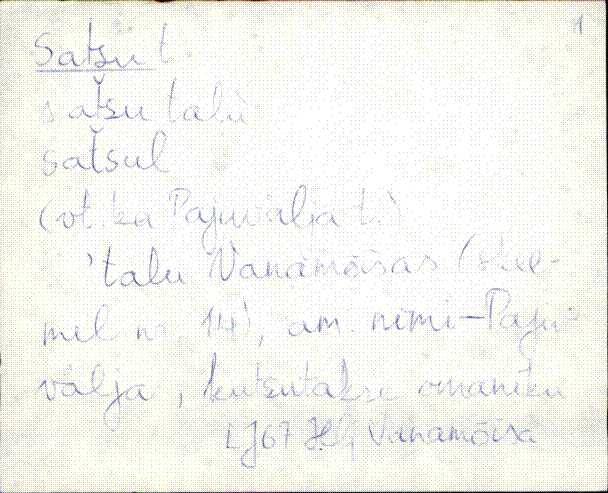 1
Satsu t.
satšu talu
satšul
(vt. ka Pajuvälja t.)
'talu Vanamõisas (skee-
mil nr. 14), am. nimi - Paju-
välja, kutsutakse omaniku
LJ67 Vanamõisa